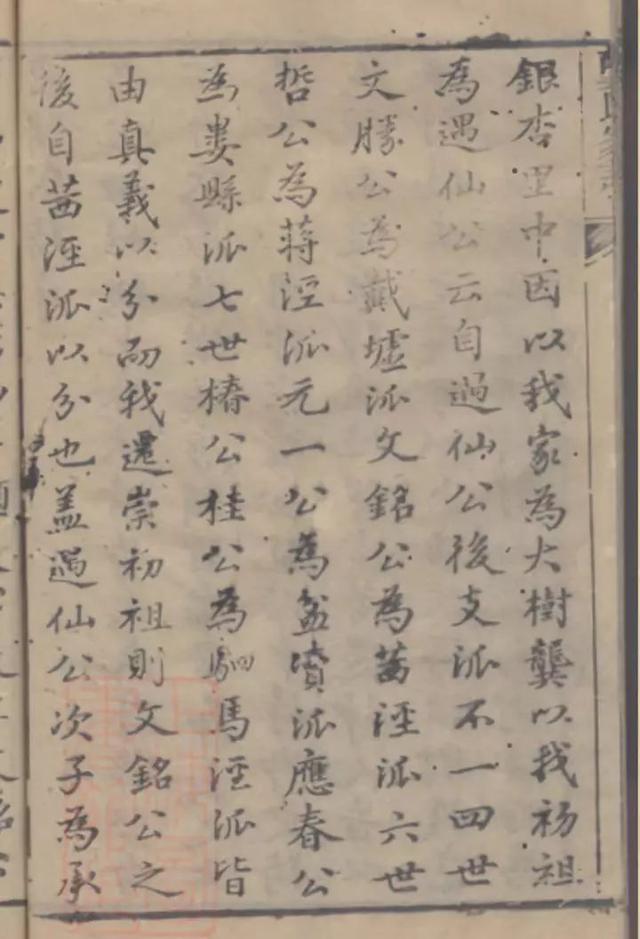 銀杏里中因以我家為大樹龔以我初祖
為遇仙公云自過仙公後支派不一四世
文勝公為戴墟派文銘公為茜涇派六世
哲公為蔣涇派元一公為盆瀆派應春公
為婁縣派七世椿公桂公為駟馬涇派皆
由真義以分而我還崇初祖則文銘公之
後自茜涇派以分也蓋過仙公次子為承